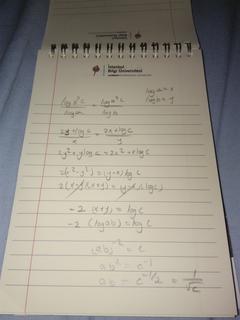 İstanbul
Bilgi Üniversitesi
log a = x
log b = y
log b²c / log a = log a²c / log b
2y + log c / x = 2x + log c / y
2y² + y log c = 2x² + x log c
2(x² - y²) = (y - x) log c
2(x - y)(x + y) = (y - x) log c
-2 (x + y) = log c
-2 (log ab) = log c
(ab)⁻² = c
ab² = c⁻¹
ab = c^(-1/2) = 1/√c